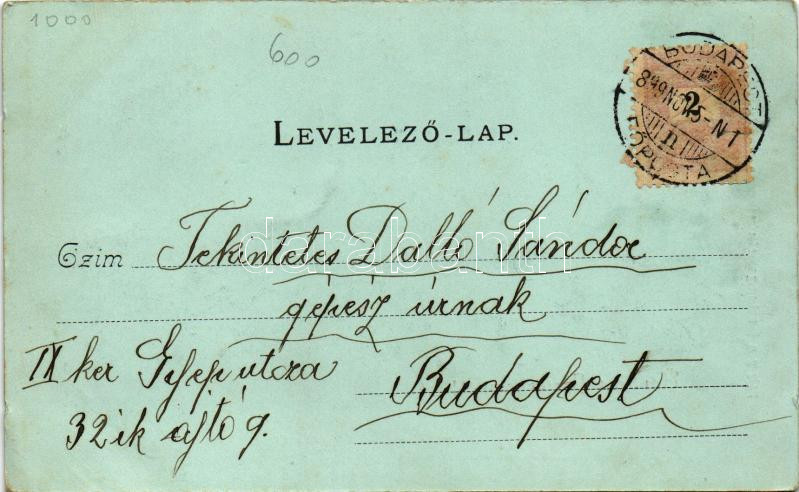 1000
600
BUDAPEST
849 NOV 5-N1
2
n
FŐPOSTA
LEVELEZŐ-LAP.
Czim Tekintetes Dalló Sándor
darabanth
gépész úrnak
IX ker Gyep utcza
Budapest
32ik ajtó 9.